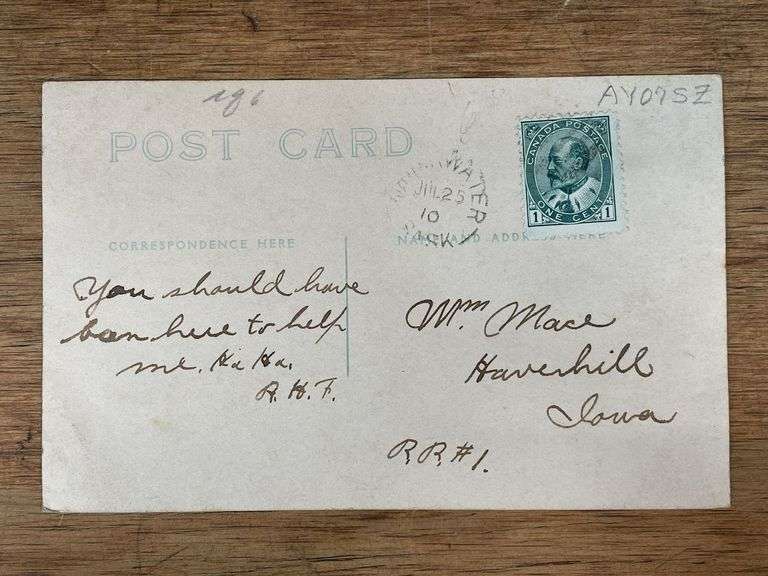 AY07SZ
POST CARD
CANADA POSTAGE
ONE CENT
1 1
WATERY
JUL 25
10
SASK
CORRESPONDENCE HERE
NAME AND ADDRESS HERE
You should have
ben here to help
me. Ha Ha.
R. H. F.
Wm Mace
Haverhill
Iowa
R.R. #1.